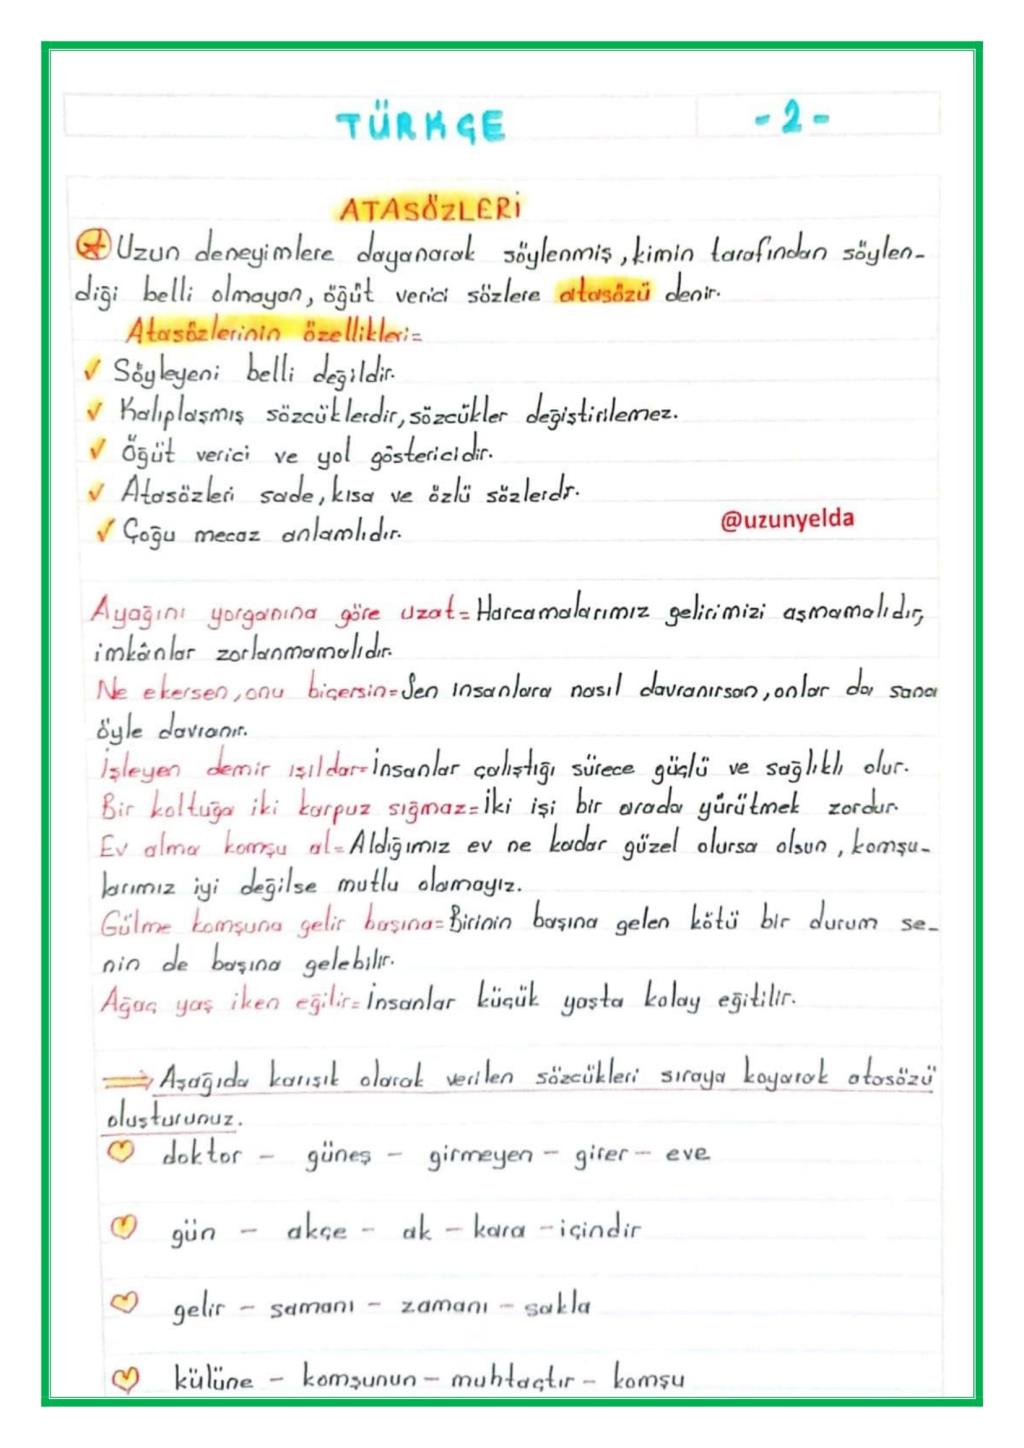 TÜRKÇE
-2-
ATASÖZLERİ
Uzun deneyimlere dayanarak söylenmiş, kimin tarafından söylen-
diği belli olmayan, öğüt verici sözlere atasözü denir.
Atasözlerinin özellikleri=
✓ Söyleyeni belli değildir.
✓ Kalıplaşmış sözcüklerdir, sözcükler değiştirilemez.
✓ Öğüt verici ve yol göstericidir.
✓ Atasözleri sade, kısa ve özlü sözlerdr.
✓ Çoğu mecaz anlamlıdır.
@uzunyelda
Ayağını yorganına göre uzat= Harcamalarımız gelirimizi aşmamalıdır,
imkânlar zorlanmamalıdır.
Ne ekersen, onu biçersin= Sen insanlara nasıl davranırsan, onlar da sana
öyle davranır.
İşleyen demir ışıldar= İnsanlar çalıştığı sürece güçlü ve sağlıklı olur.
Bir koltuğa iki karpuz sığmaz= İki işi bir arada yürütmek zordur.
Ev alma komşu al= Aldığımız ev ne kadar güzel olursa olsun, komşu-
larımız iyi değilse mutlu olamayız.
Gülme komşuna gelir başına= Birinin başına gelen kötü bir durum se-
nin de başına gelebilir.
Ağaç yaş iken eğilir= İnsanlar küçük yaşta kolay eğitilir.
⇒ Aşağıda karışık olarak verilen sözcükleri sıraya koyarak atasözü
oluşturunuz.
doktor - güneş - girmeyen - girer - eve
gün - akçe - ak - kara - içindir
gelir - samanı - zamanı - sakla
külüne - komşunun - muhtaçtır - komşu